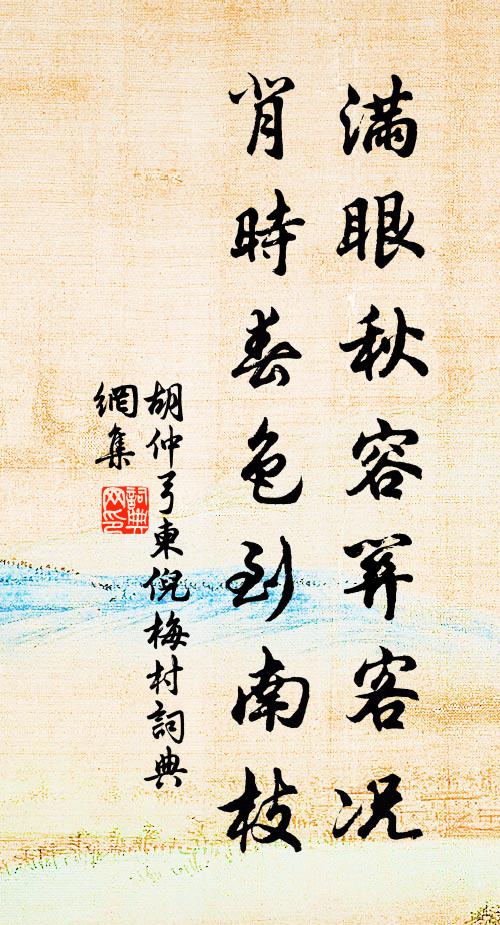 滿眼秋容關客况
肖時春色到南枝
胡仲弓東倪梅村詞典
網集
詞典
网印